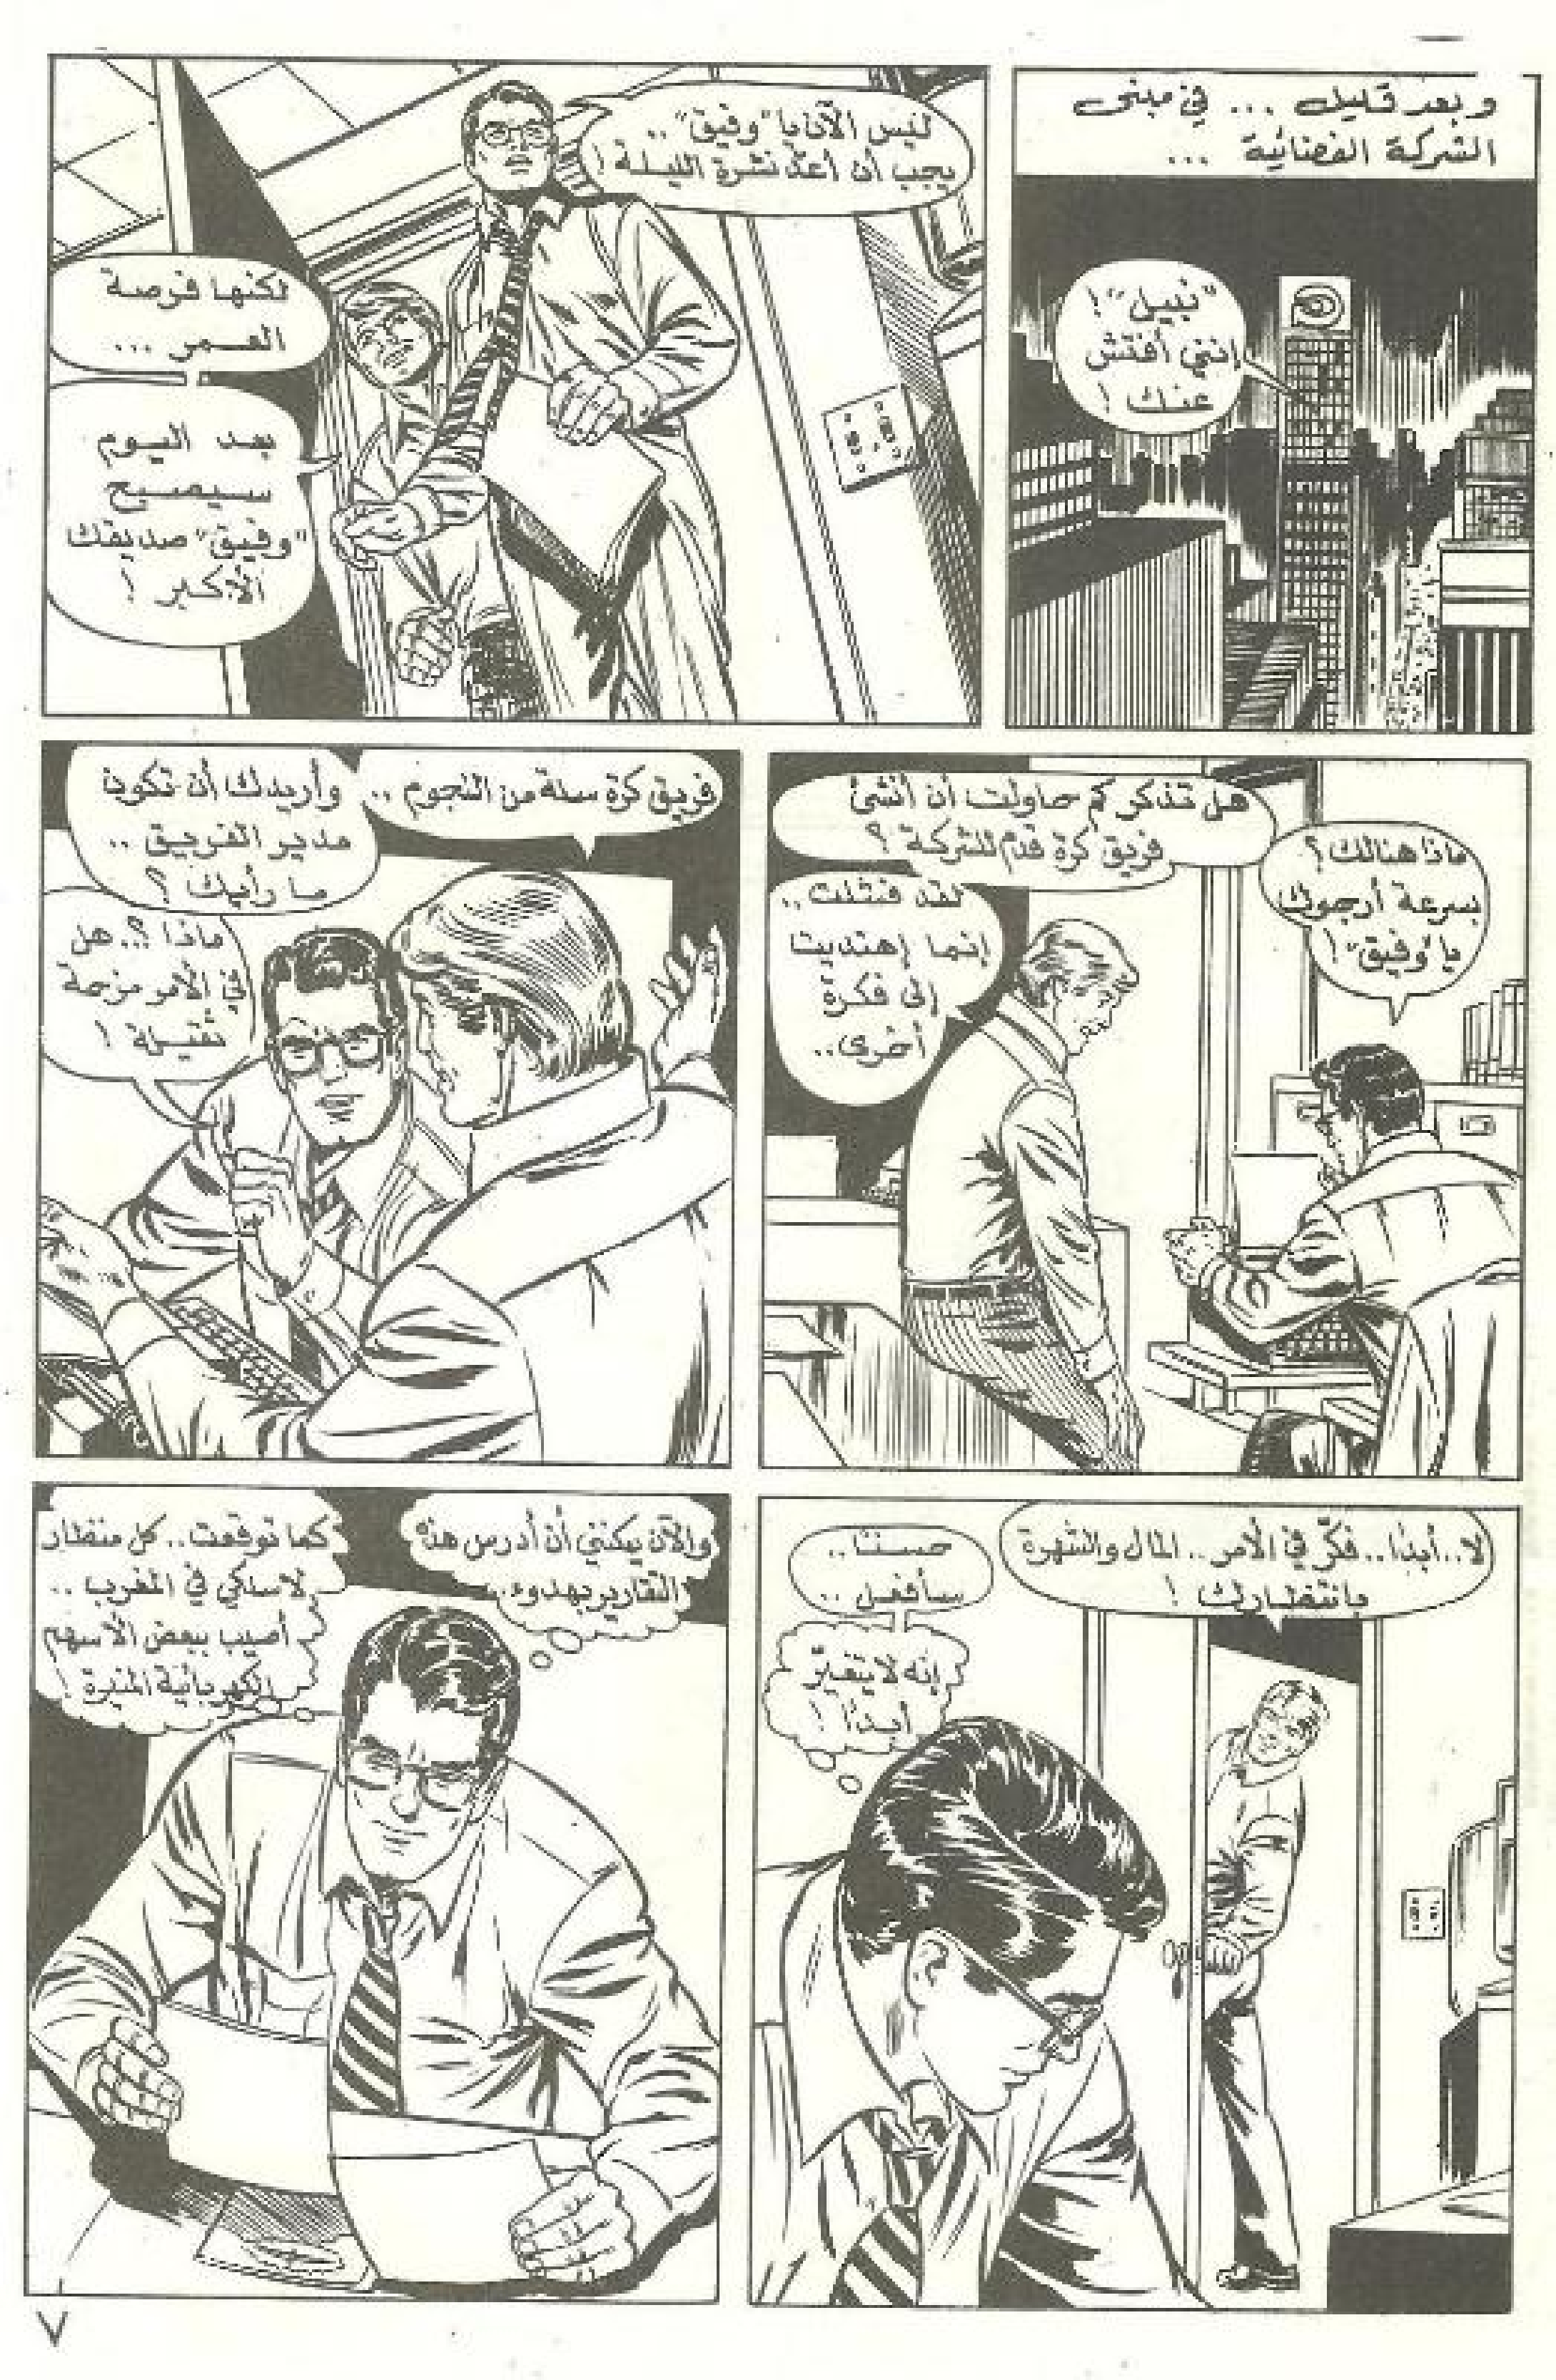 وبعد قليل ... في مبنى
الشركة الفضائية ...
"نبيل"!
إنني أفتش
عنك!
ليس الآن يا "وفيق"..
يجب أن أعدّ نشرة الليلة!
لكنها فرصة
العمر ...
بعد اليوم
سيصبح
"وفيق" صديقك
الأكبر!
ماذا هنالك؟
بسرعة أرجوك
يا "وفيق"!
هل تذكر كم حاولت أن أنشئ
فريق كرة قدم للشركة؟
لقد فشلت..
إنما إهتديت
إلى فكرة
أخرى..
فريق كرة سلة من النجوم ..
وأريدك أن تكون
مدير الفريق ..
ما رأيك؟
ماذا؟.. هل
في الأمر مزحة
ثقيلة!
لا.. أبدًا.. فكّر في الأمر.. المال والشهرة
بانتظارك!
حسنًا..
سأفعل ..
إنه لا يتغيّر
أبدًا!
والآن يمكنني أن أدرس هذه
التقارير بهدوء..
كما توقعت.. كل منظار
لاسلكي في المغرب ..
أصيب ببعض الأسهم
الكهربائية المنيرة!
٧